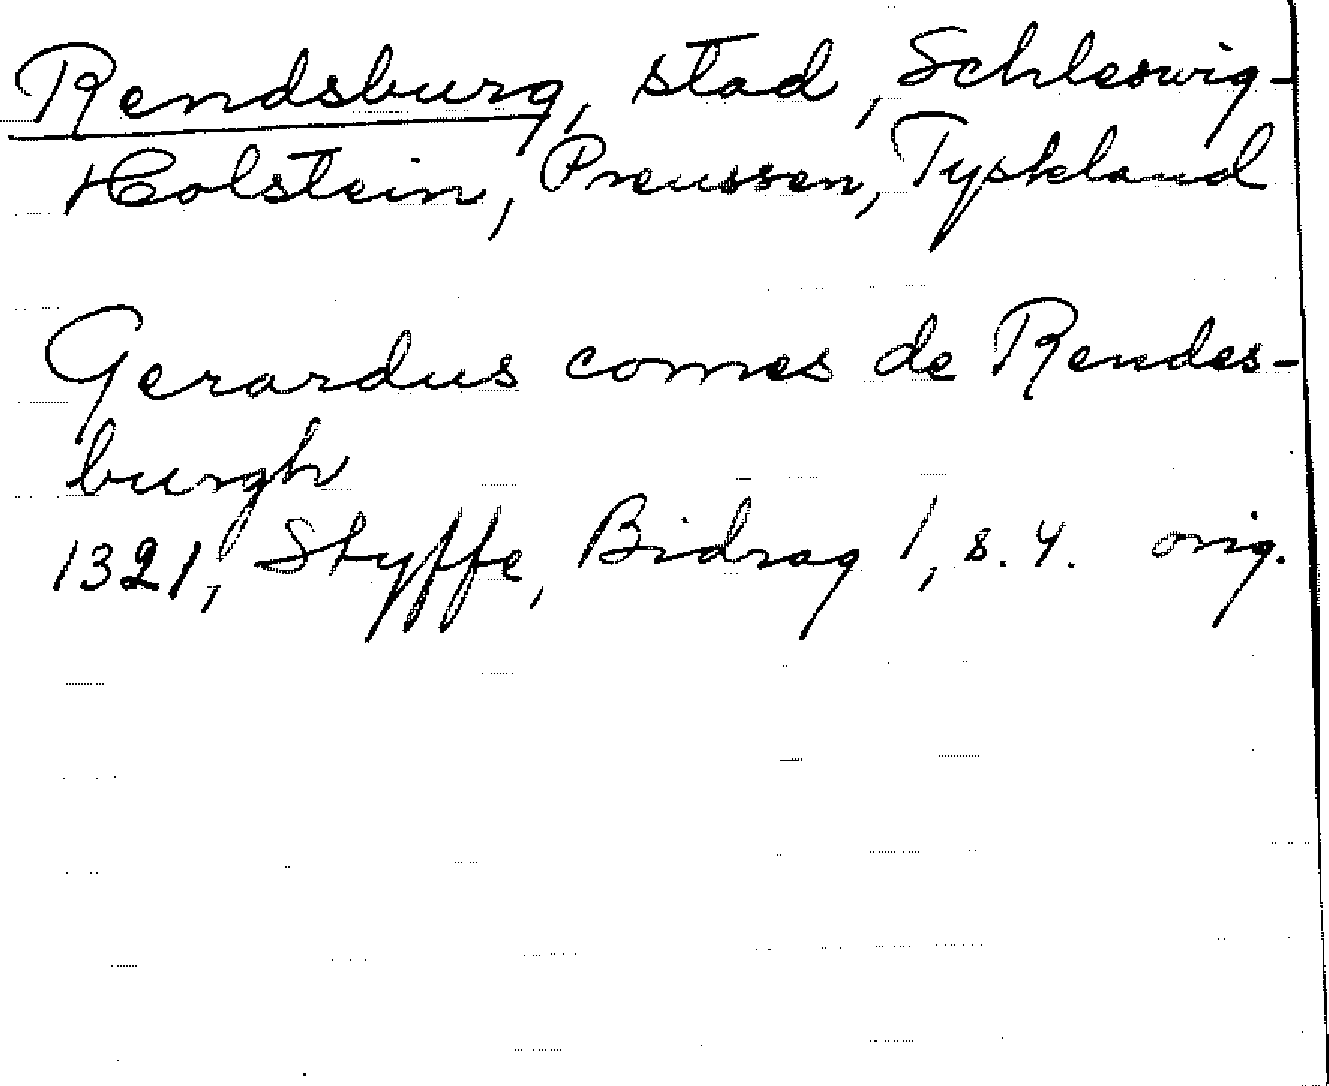 Rendsburg, stad, Schleswig-
Holstein, Preussen, Tyskland
Gerardus comes de Rendes-
burgh
1321, Styffe, Bidrag 1, s. 4. orig.